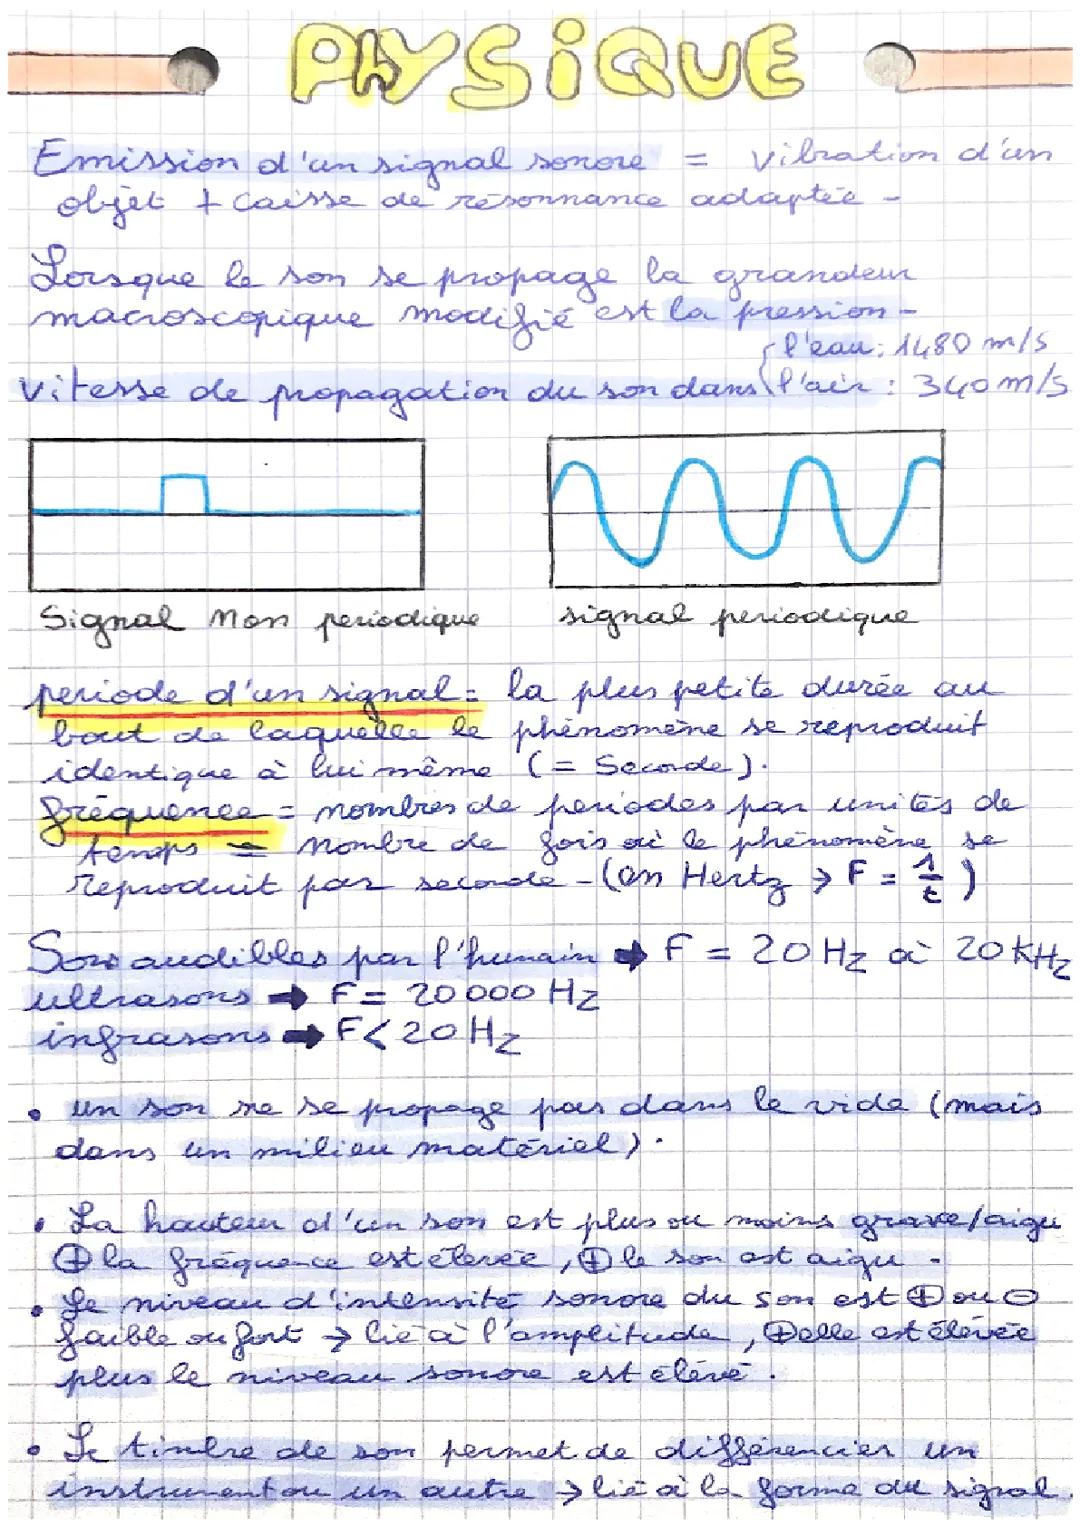 PHYSiQUE
Emission d'un signal sonore = vibration d'un
objet + caisse de résonnance adaptée -
Lorsque le son se propage la grandeur
macroscopique modifié est la pression -
l'eau : 1480 m/s
Vitesse de propagation du son dans l'air : 340 m/s
Signal non periodique
signal periodique
periode d'un signal = la plus petite durée au
bout de laquelle le phénomène se reproduit
identique à lui même (= Seconde).
fréquence = nombres de periodes par unités de
temps = nombre de fois où le phénomène se
reproduit par seconde - (en Hertz → F = 1/t)
Sons audibles par l'humain ➡ F = 20 Hz à 20 KHz
ultrasons ➡ F = 20 000 Hz
infrasons ➡ F < 20 Hz
• un son ne se propage pas dans le vide (mais
dans un milieu matériel).
• La hauteur d'un son est plus ou moins grave/aigu
⊕ la fréquence est élevée, ⊕ le son est aigu -
• Le niveau d'intensité sonore du son est ⊕ ou ⊖
faible ou fort → lié à l'amplitude, ⊕ elle est élévée
plus le niveau sonore est élevé.
• Le timbre de son permet de différencier un
instrument ou un autre → lié à la forme du signal.